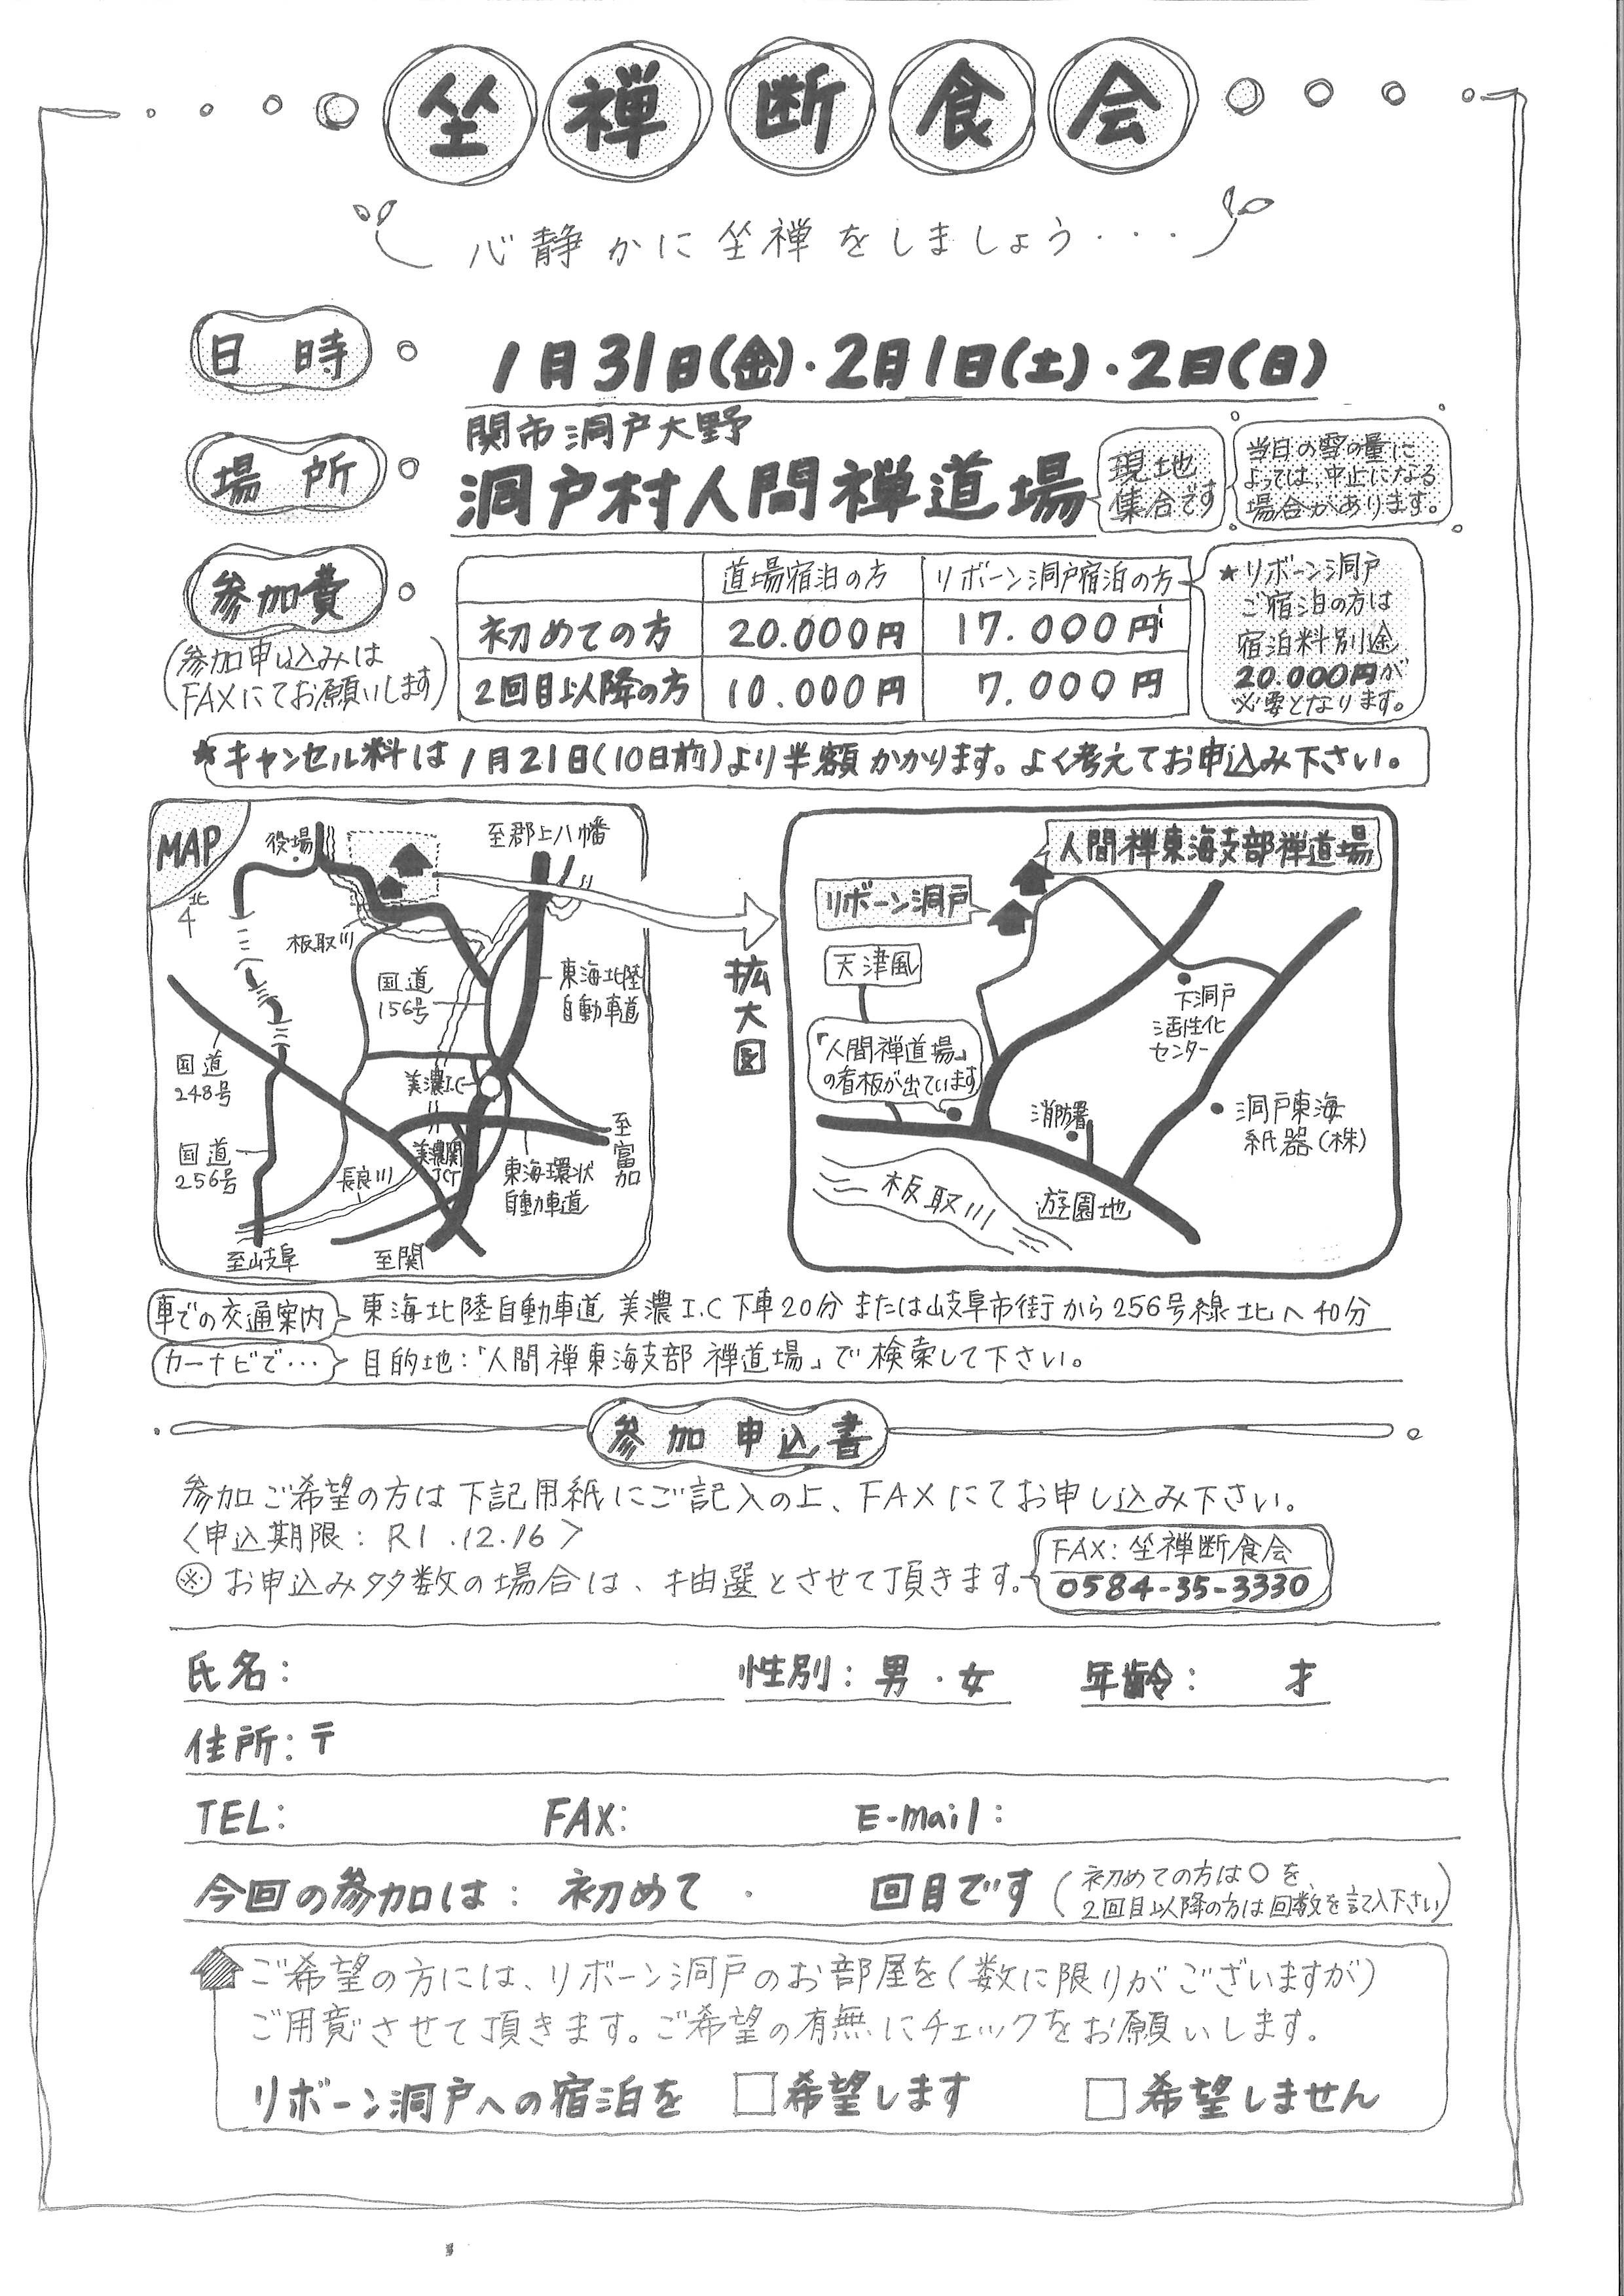 坐禅断食会
心静かに坐禅をしましょう・・・
日時
1月31日(金)・2月1日(土)・2日(日)
場所
関市洞戸大野
洞戸村人間禅道場
現地
集合です
当日の雪の量に
よっては、中止になる
場合があります。
参加費
(参加申し込みは
FAXにてお願いします)
道場宿泊の方 リボーン洞戸宿泊の方
初めての方 20.000円 17.000円
2回目以降の方 10.000円 7.000円
★リボーン洞戸
ご宿泊の方は
宿泊料別途
20.000円が
必要となります。
★キャンセル料は1月21日(10日前)より半額かかります。よく考えてお申込み下さい。
MAP
北
役場
至郡上八幡
板取川
国道
156号
東海北陸
自動車道
国道
248号
美濃I.C
国道
256号
長良川
美濃関
JCT
東海環状
自動車道
至富加
至岐阜
至関
拡大図
人間禅東海支部禅道場
リボーン洞戸
天津風
「人間禅道場」
の看板が出ています
下洞戸
活性化
センター
消防署
洞戸東海
紙器(株)
板取川
遊園地
車での交通案内 東海北陸自動車道 美濃I.C下車20分または岐阜市街から256号線北へ40分
カーナビで… 目的地:「人間禅東海支部 禅道場」で検索して下さい。
参加申込書
参加ご希望の方は下記用紙にご記入の上、FAXにてお申し込み下さい。
<申込期限: R1.12.16>
※お申込み多数の場合は、抽選とさせて頂きます。
FAX: 坐禅断食会
0584-35-3330
氏名: 性別: 男・女 年齢: 才
住所:〒
TEL: FAX: E-mail:
今回の参加は: 初めて ・ 回目です (初めての方は○を、
2回目以降の方は回数を記入下さい)
ご希望の方には、リボーン洞戸のお部屋を(数に限りがございますが)
ご用意させて頂きます。ご希望の有無にチェックをお願いします。
リボーン洞戸への宿泊を □希望します □希望しません